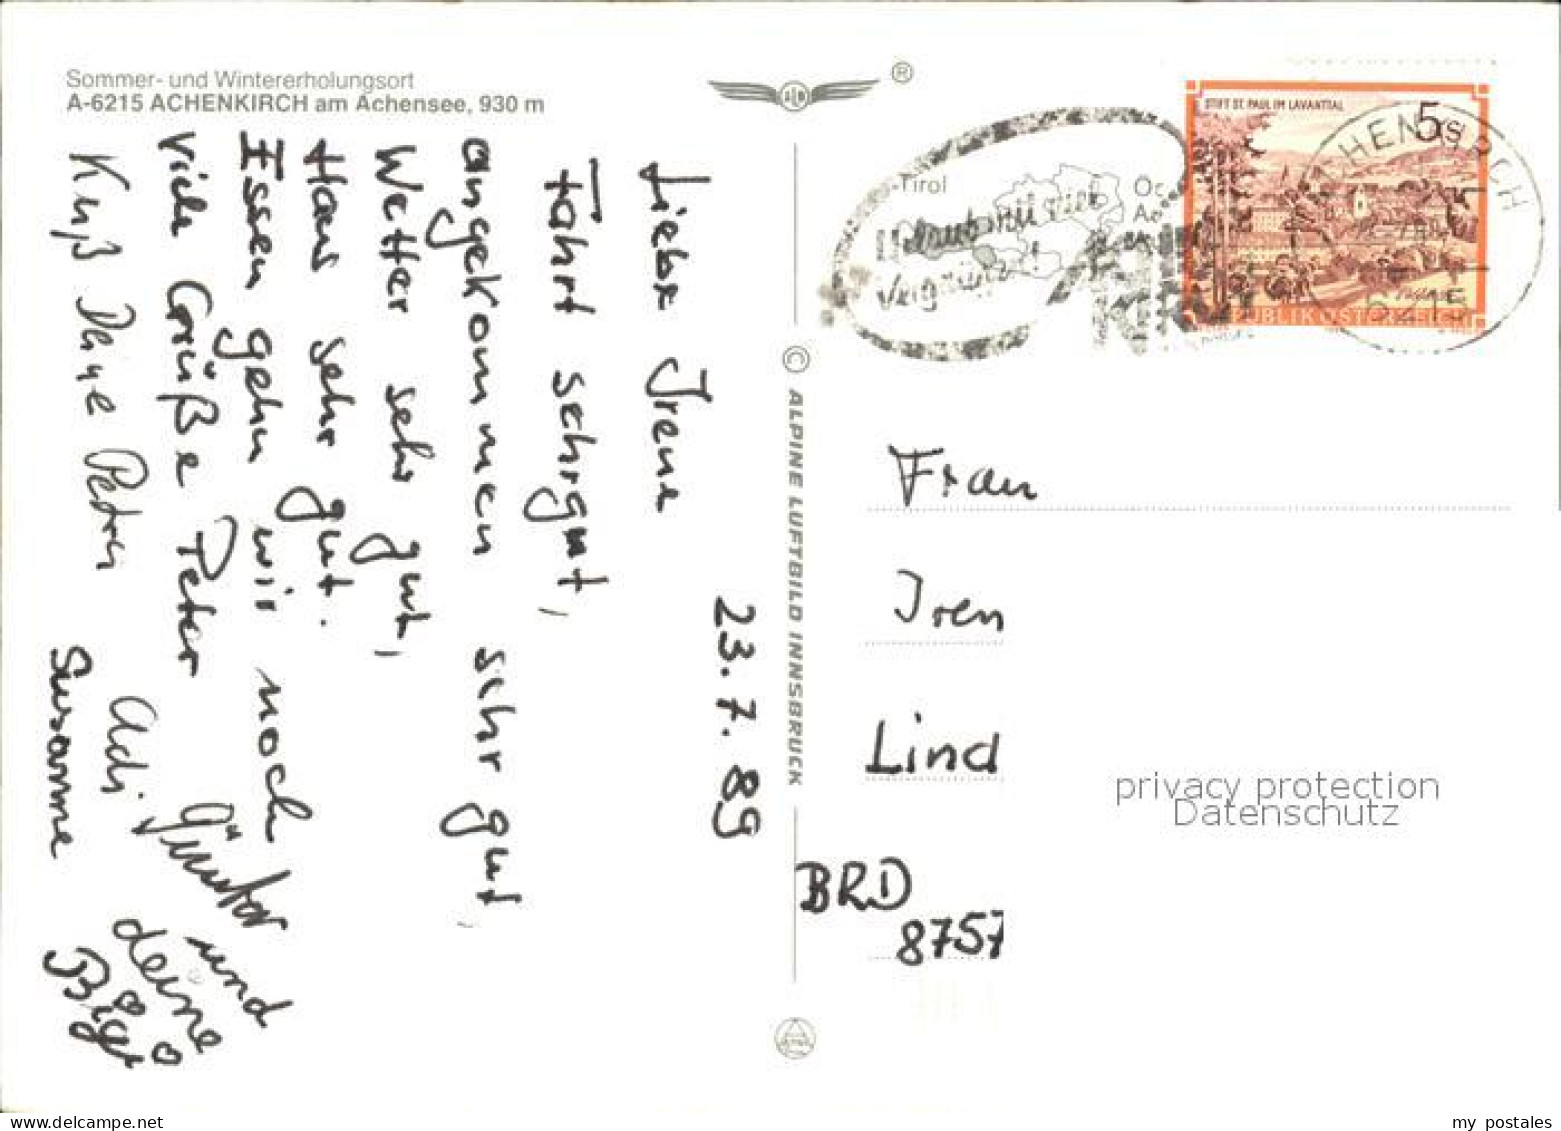 Sommer- und Wintererholungsort
A-6215 ACHENKIRCH am Achensee, 930 m
®
23. 7. 89
Liebe Irene
Fahrt sehr gut,
angekommen sehr gut,
Wetter sehr gut,
Haus sehr gut.
Essen gehn wir noch
Viele Grüße Peter
Kuß Deine Petra
Adi, Günter und
Susanne
deine
Biggi
© ALPINE LUFTBILD INNSBRUCK
Tirol
Urlaub mit viel
Vergnügen!
STIFT ST. PAUL IM LAVANTTAL
5 S
REPUBLIK ÖSTERREICH
ACHENKIRCH
6215
Frau
Iren
Lind
BRD
8757
privacy protection
Datenschutz
my postales
www.delcampe.net